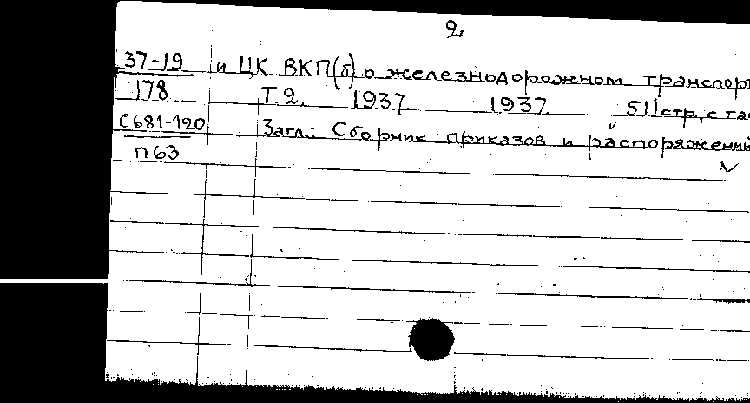 2.
37-19 и ЦК ВКП(б) о железнодорожном транспор
178 Т.2. 1937 1937 511 стр. с та
С681-190 Загл.: Сборник приказов и распоряжений
П63